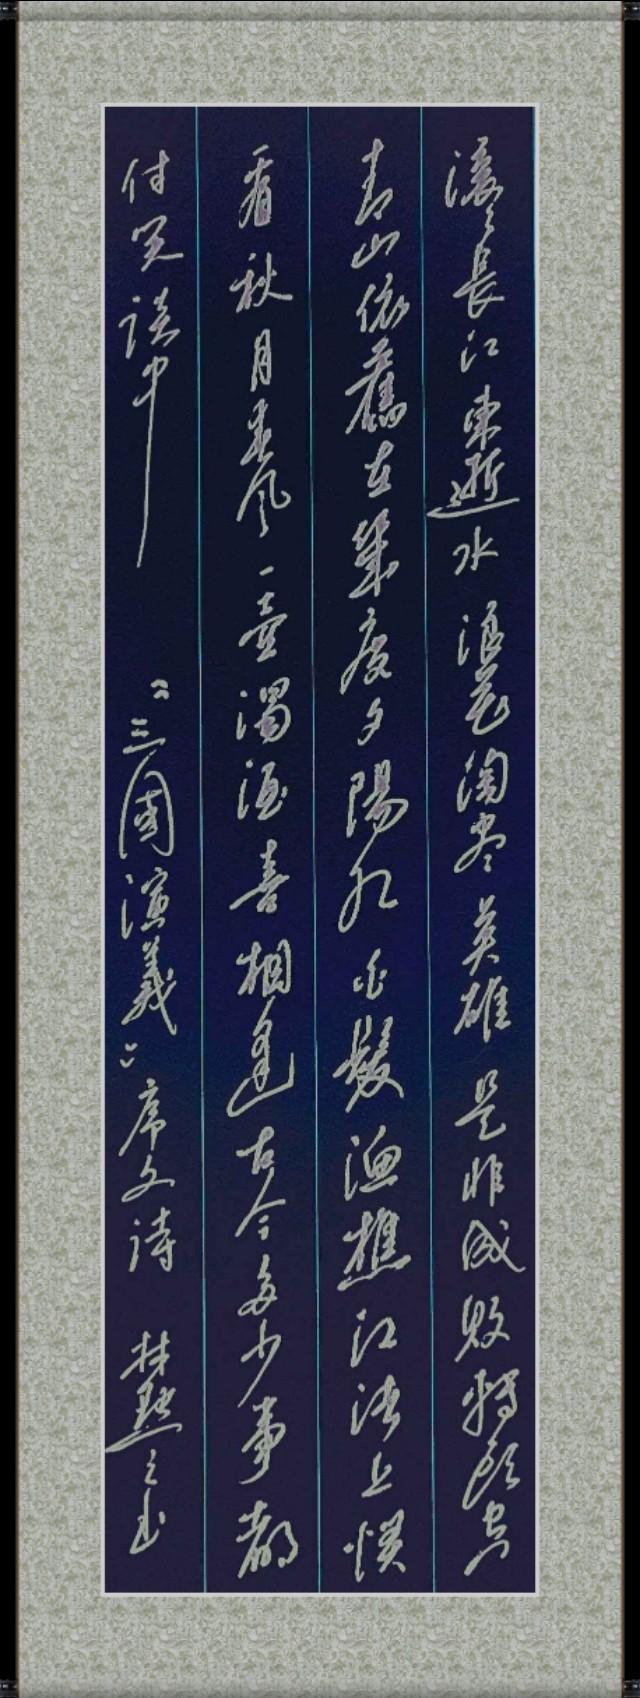 滚々長江東逝水浪花淘尽英雄是非成败转頭空
青山依舊在幾度夕陽红白髮漁樵江渚上慣
看秋月春风一壶濁酒喜相逢古今多少事都
付笑谈中 “三國演義”序文诗 林默之书